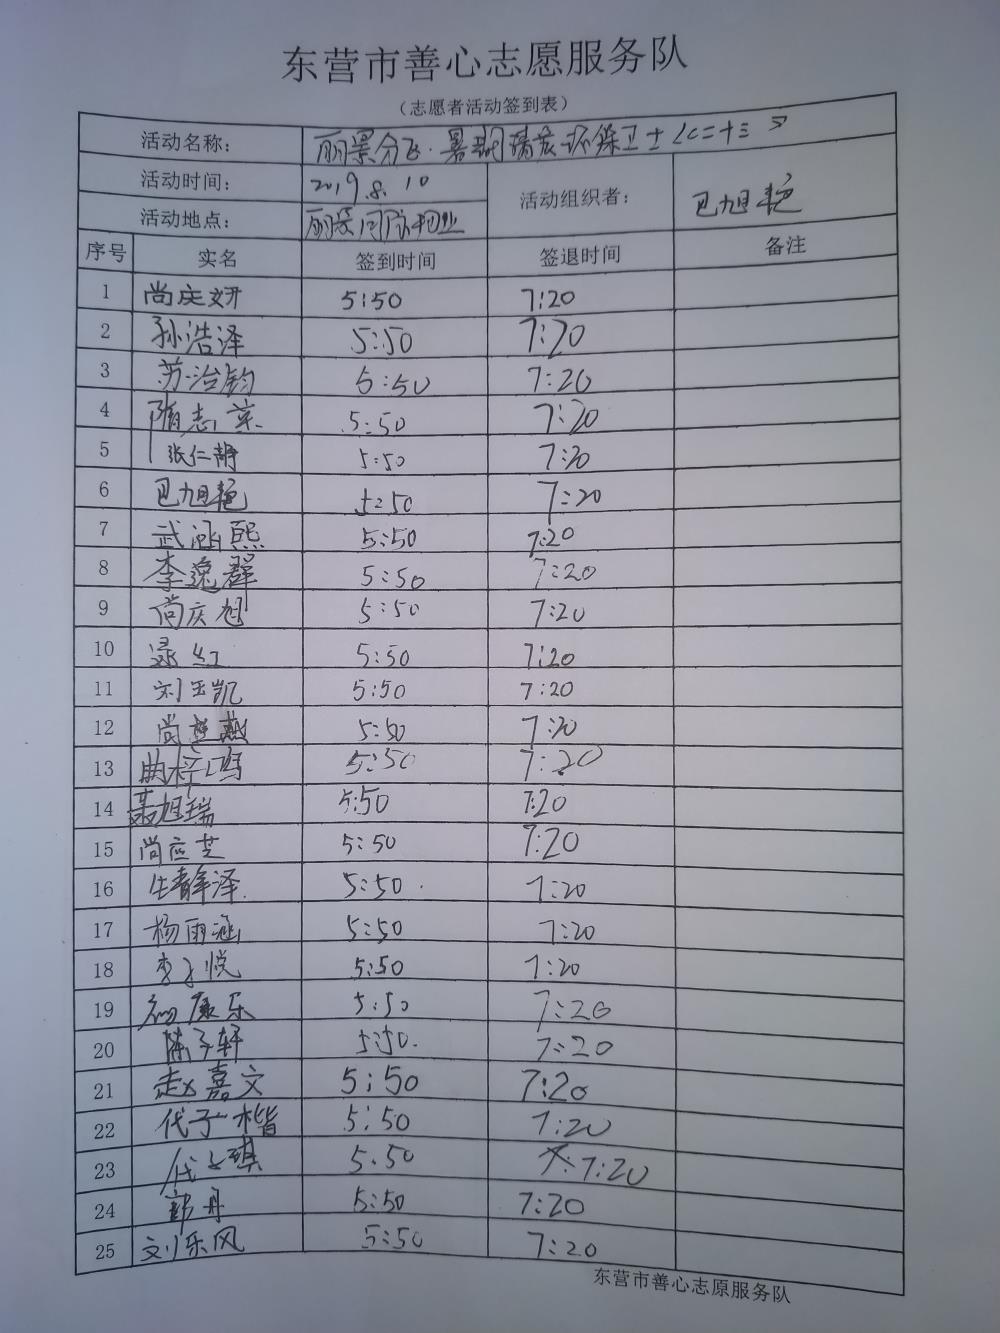 东营市善心志愿服务队
（志愿者活动签到表）
活动名称：
活动时间： 2019.8.10 活动组织者： 巴旭艳
活动地点：
序号 实名 签到时间 签退时间 备注
1 尚庆妍 5:50 7:20
2 孙浩泽 5:50 7:20
3 苏治钧 5:50 7:20
4 隋志 5:50 7:20
5 张仁静 5:50 7:20
6 巴旭艳 5:50 7:20
7 武涵熙 5:50 7:20
8 李逸群 5:50 7:20
9 尚庆旭 5:50 7:20
10 红 5:50 7:20
11 刘玉凯 5:50 7:20
12 尚 燕 5:50 7:20
13 5:50 7:20
14 聂旭瑞 5:50 7:20
15 尚应芝 5:50 7:20
16 泽 5:50 7:20
17 杨雨涵 5:50 7:20
18 李子悦 5:50 7:20
19 康乐 5:50 7:20
20 陈子轩 5:50 7:20
21 赵嘉文 5:50 7:20
22 代子楷 5:50 7:20
23 代 琪 5:50 7:20
24 郭丹 5:50 7:20
25 刘乐风 5:50 7:20
东营市善心志原服务队